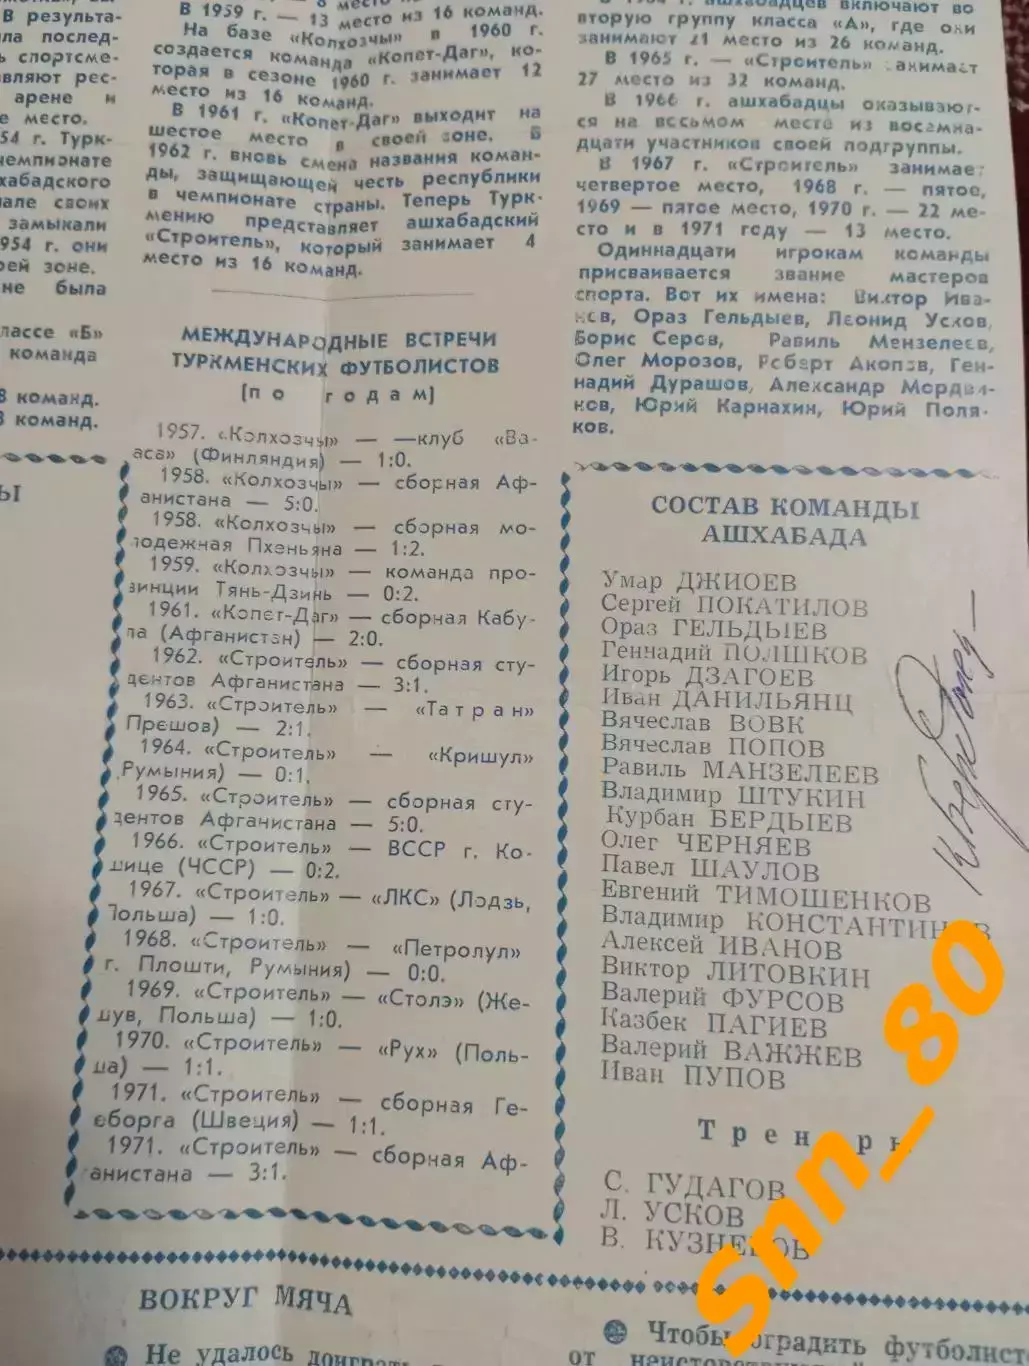 В результа-
ла послед-
ь спортсме-
авляют рес-
арене и
е место.
54 г. Турк-
чемпионате
хабадского
але своих
замыкали
1954 г. они
оей зоне.
не была
лассе «Б»
команда
8 команд.
8 команд.
В 1959 г. — 13 место из 16 команд.
На базе «Колхозчы» в 1960 г.
создается команда «Копет-Даг», ко-
торая в сезоне 1960 г. занимает 12
место из 16 команд.
В 1961 г. «Копет-Даг» выходит на
шестое место в своей зоне. В
1962 г. вновь смена названия коман-
ды, защищающей честь республики
в чемпионате страны. Теперь Турк-
мению представляет ашхабадский
«Строитель», который занимает 4
место из 16 команд.
МЕЖДУНАРОДНЫЕ ВСТРЕЧИ
ТУРКМЕНСКИХ ФУТБОЛИСТОВ
(по годам)
1957. «Колхозчы» — —клуб «Ва-
аса» (Финляндия) — 1:0.
1958. «Колхозчы» — сборная Аф-
анистана — 5:0.
1958. «Колхозчы» — сборная мо-
лодежная Пхеньяна — 1:2.
1959. «Колхозчы» — команда про-
винции Тянь-Дзинь — 0:2.
1961. «Копет-Даг» — сборная Кабу-
ла (Афганистан) — 2:0.
1962. «Строитель» — сборная сту-
дентов Афганистана — 3:1.
1963. «Строитель» — «Татран»
Прешов) — 2:1.
1964. «Строитель» — «Кришул»
Румыния) — 0:1.
1965. «Строитель» — сборная сту-
дентов Афганистана — 5:0.
1966. «Строитель» — ВССР г. Ко-
шице (ЧССР) — 0:2.
1967. «Строитель» — «ЛКС» (Лодзь,
Польша) — 1:0.
1968. «Строитель» — «Петролул»
г. Плошти, Румыния) — 0:0.
1969. «Строитель» — «Столэ» (Же-
шув, Польша) — 1:0.
1970. «Строитель» — «Рух» (Поль-
ша) — 1:1.
1971. «Строитель» — сборная Ге-
еборга (Швеция) — 1:1.
1971. «Строитель» — сборная Аф-
ганистана — 3:1.
г. ашхабадцев включают во
вторую группу класса «А», где они
занимают 21 место из 26 команд.
В 1965 г. — «Строитель» занимает
27 место из 32 команд.
В 1966 г. ашхабадцы оказывают-
ся на восьмом месте из восемна-
дцати участников своей подгруппы.
В 1967 г. «Строитель» занимает
четвертое место, 1968 г. — пятое,
1969 — пятое место, 1970 г. — 22 ме-
сто и в 1971 году — 13 место.
Одиннадцати игрокам команды
присваивается звание мастеров
спорта. Вот их имена: Виктор Ива-
нов, Ораз Гельдыев, Леонид Усков,
Борис Серов, Равиль Мензелеев,
Олег Морозов, Роберт Акопов, Ген-
надий Дурашов, Александр Мордви-
нов, Юрий Карнахин, Юрий Поля-
ков.
СОСТАВ КОМАНДЫ
АШХАБАДА
Умар ДЖИОЕВ
Сергей ПОКАТИЛОВ
Ораз ГЕЛЬДЫЕВ
Геннадий ПОЛШКОВ
Игорь ДЗАГОЕВ
Иван ДАНИЛЬЯНЦ
Вячеслав ВОВК
Вячеслав ПОПОВ
Равиль МАНЗЕЛЕЕВ
Владимир ШТУКИН
Курбан БЕРДЫЕВ
Олег ЧЕРНЯЕВ
Павел ШАУЛОВ
Евгений ТИМОШЕНКОВ
Владимир КОНСТАНТИНОВ
Алексей ИВАНОВ
Виктор ЛИТОВКИН
Валерий ФУРСОВ
Казбек ПАГИЕВ
Валерий ВАЖЖЕВ
Иван ПУПОВ
Тренеры
С. ГУДАГОВ
Л. УСКОВ
В. КУЗНЕЦОВ
ВОКРУГ МЯЧА
Не удалось доиграть
Чтобы оградить футболист
от неистовствующих
snn_80